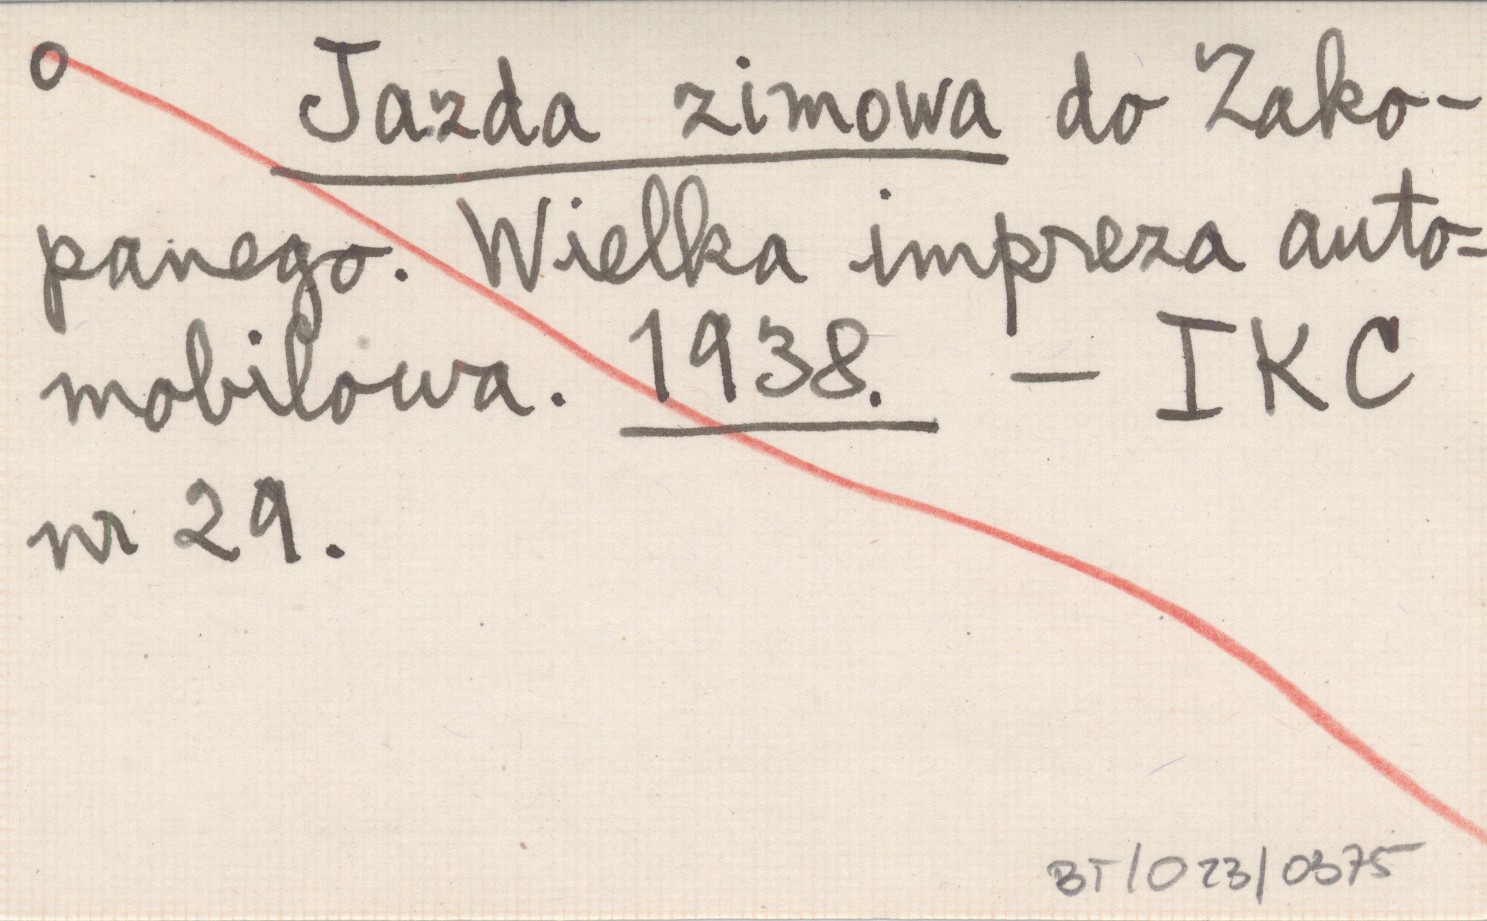 o Jazda zimowa do Zako-
panego. Wielka impreza auto=
mobilowa. 1938. — IKC
nr 29.
BT/023/0375